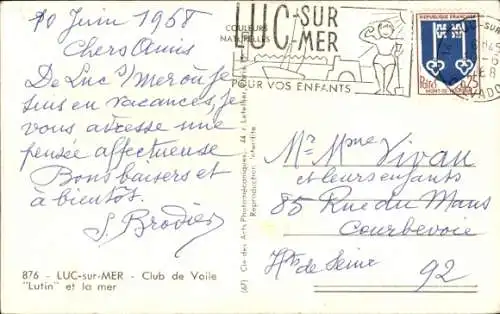 10 Juin 1968
Chers Amis
De Luc s/ mer où je
suis en vacances, je
vous adresse une
pensée affectueuse
Bons baisers et
à bientôt.
S. Brodier
876 - LUC-sur-MER - Club de Voile
"Lutin" et la mer
COULEURS
NATURELLES
(67) Cie des Arts Photomécaniques, 44, r. Letellier,
Reproduction interdite
LUC-SUR
MER
POUR VOS ENFANTS
REPUBLIQUE FRANÇAISE
MONT-DE-MARSAN
LUC-SUR
Mr Mme Vivan
et leurs enfants
85 Rue du Mans
Courbevoie
Hts de Seine 92